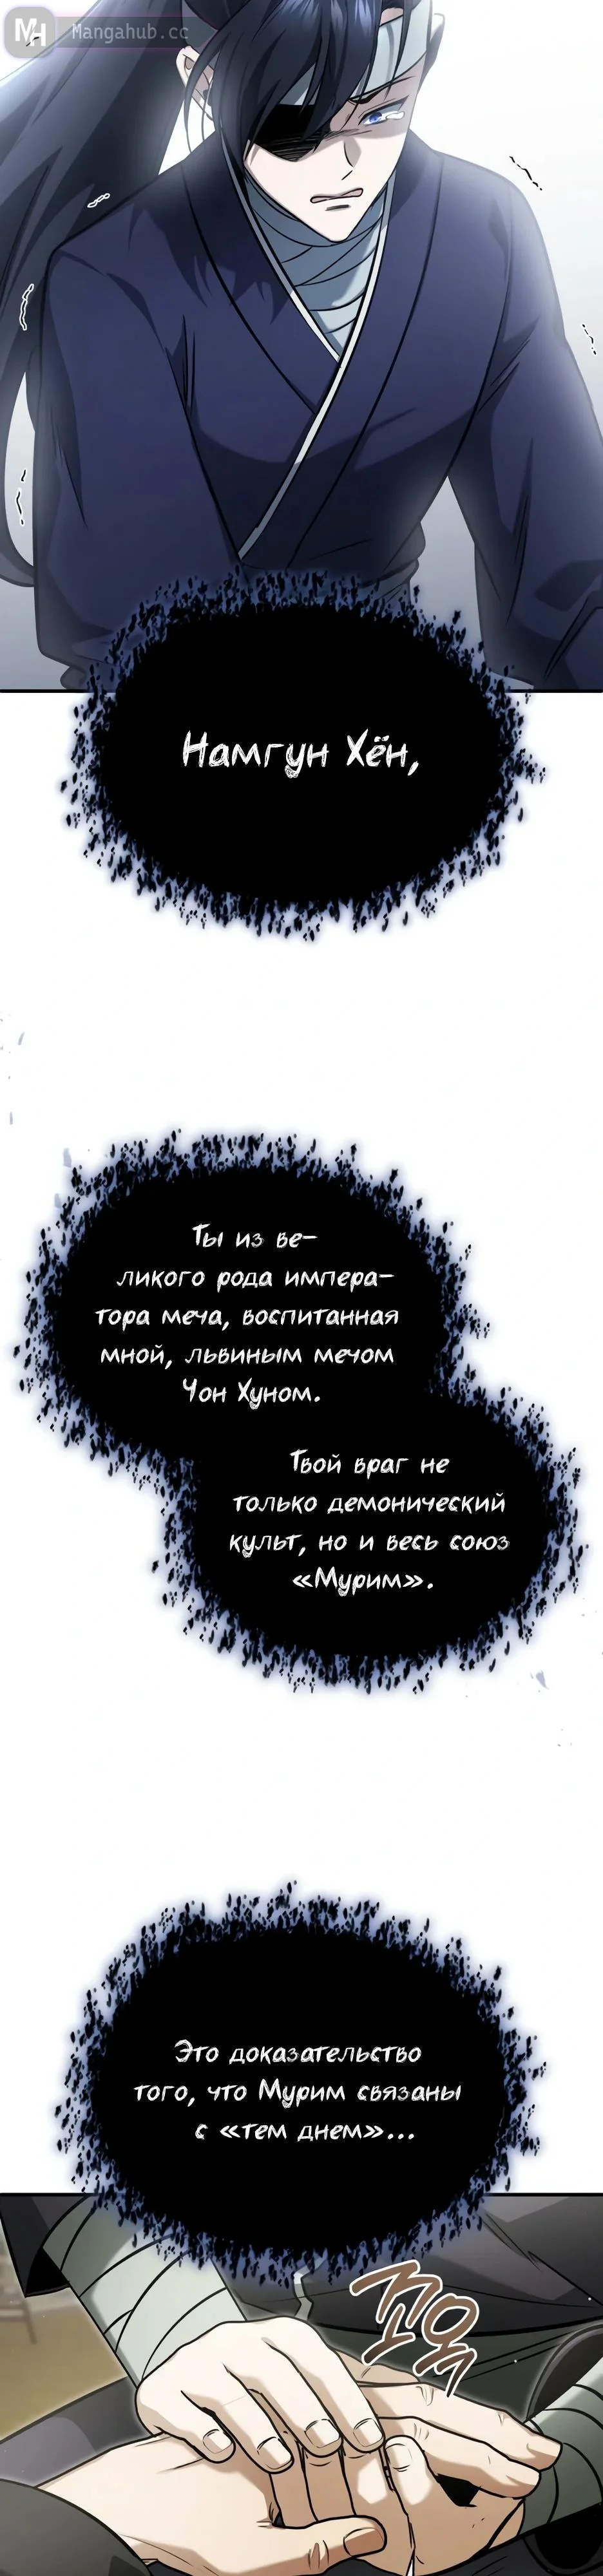 MH Mangahub.cc
Намгун Хён,
Ты из ве-
ликого рода импера-
тора меча, воспитанная
мной, львиным мечом
Чон Хуном.
Твой враг не
только демонический
культ, но и весь союз
«Мурим».
Это доказательство
того, что Мурим связаны
с «тем днем»...
꾸욱